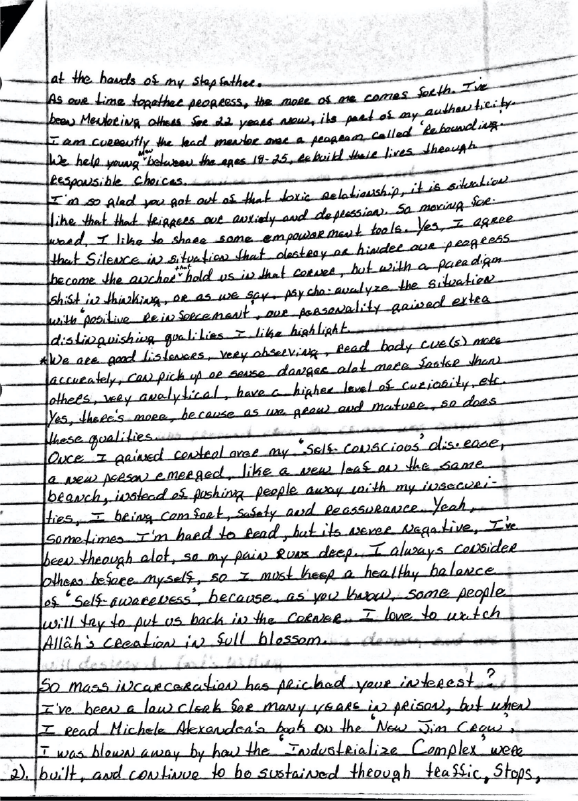 at the hands of my stepfather.
As our time together progress, the more of me comes forth. I've
been Mentoring others for 22 years now, its part of my authenticity.
I am currently the lead mentor over a program called "Rebounding."
We help young men between the ages 18-25, rebuild their lives through
Responsible Choices.
I'm so glad you got out of that toxic Relationship, it is situation
like that that triggers our anxiety and depression. So moving for-
ward, I like to share some empowerment tools. Yes, I agree
that Silence in situation that destroy or hinder our progress
become the anchor that hold us in that corner, but with a Paradigm
shift in thinking, or as we say, psycho-analyze the situation
with "positive Reinforcement", our personality gained extra
distinguishing qualities I like highlight.
*We are good listeners, very observing, read body cue(s) more
accurately, can pick up or sense danger alot more faster than
others, very analytical, have a higher level of curiosity, etc.
Yes, there's more, because as we grow and mature, so does
these qualities.
Once I gained control over my "Self-Conscious" dis-ease,
a new person emerged, like a new leaf on the same
branch, instead of pushing people away with my insecuri-
ties, I bring comfort, safety and Reassurance. Yeah,
sometimes I'm hard to read, but its never negative, I've
been through alot, so my pain runs deep. I always consider
others before myself, so I must keep a healthy balance
of "Self-awareness", because, as you know, some people
will try to put us back in the corner. I love to watch
Allâh's creation in full blossom.
So mass incarceration has pricked your interest?
I've been a law clerk for many years in prison, but when
I read Michele Alexander's book on the "New Jim Crow",
I was blown away by how the "Industrialize Complex" were
2). built, and continue to be sustained through traffic, Stops,